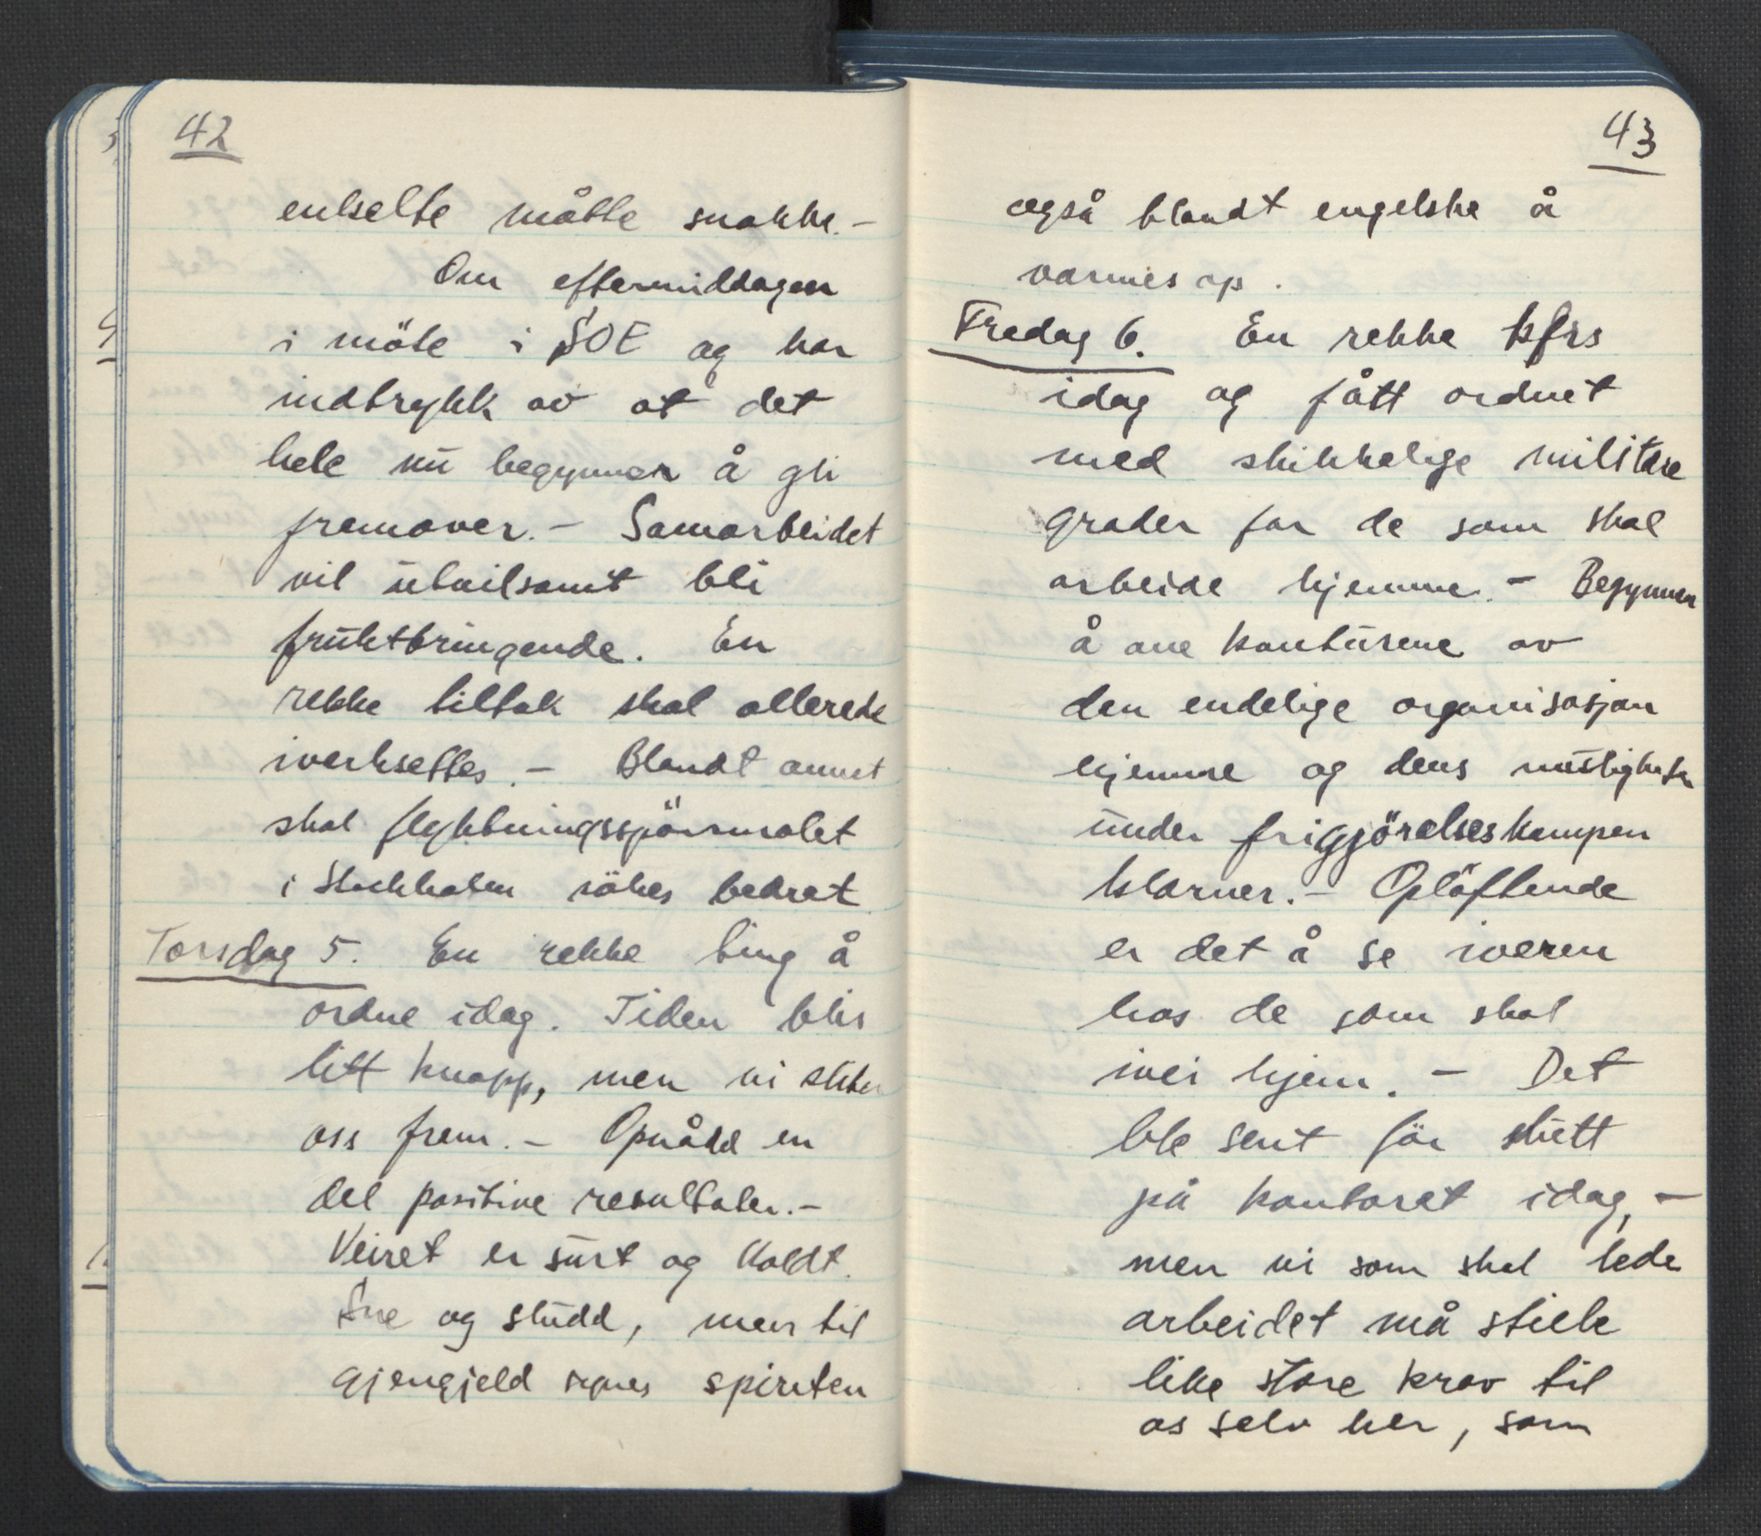 42
enkselte måtte snakke. -
Om eftermiddagen
i möte i SOE og har
indtrykk av at det
hele nu begynner å gli
fremover. - Samarbeidet
vil utvilsomt bli
fruktbringende. En
rekke tiltak skal allerede
iverksettes. - Blandt annet
skal flyktningsspörsmalet
i Stockholm sökes bedret
Torsdag 5. En rekke ting å
ordne idag. Tiden blir
litt knapp, men vi
oss frem. - Opnådd en
del positive resultater. -
Veiret er surt og koldt.
Sne og sludd, men til
gjengjeld synes spiriten
43
også blandt engelske å
varmes op.
Fredag 6. En rekke kfrs
idag og fått ordnet
med skikkelige militære
grader for de som skal
arbeide hjemme. - Begynner
å ane konturene av
den endelige organisasjon
hjemme og dens muligheter
under frigjörelseskampen
klarner. - Oplöftende
er det å se iveren
hos de som skal
ivei hjem. - Det
ble sent för slutt
på kontoret idag, -
men vi som skal lede
arbeidet må stille
like store krav til
os selv her, som